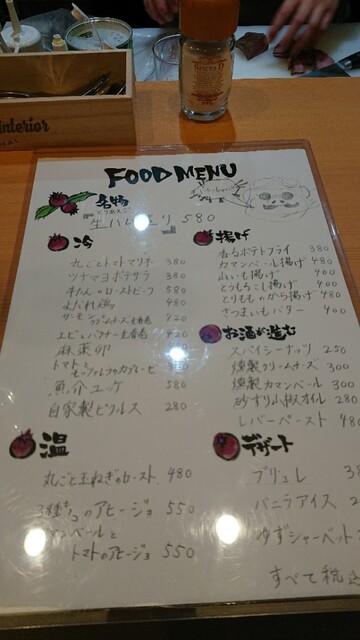 Interior
FOOD MENU
名物
とりあえず
580
冷
丸ごとトマトマリネ 380
ツナマヨポテサラ 380
牛たんのローストビーフ 580
よだれ鶏 480
420
420
麻薬卵
トマト
魚介ユッケ 580
自家製ピクルス 280
温
丸ごと玉ねぎのロースト 480
のアヒージョ 550
トマトのアヒージョ 550
揚げ
香るポテトフライ 380
カマンベール揚げ 480
いも揚げ 400
とうもろこし揚げ 400
とりもものから揚げ 480
さつまいもバター 400
お酒が進む
スパイシーナッツ 250
燻製クリームチーズ 300
燻製カマンベール 300
砂ずり山椒オイル 280
レバーペースト 480
デザート
ブリュレ
バニラアイス
ゆずシャーベット
すべて税込